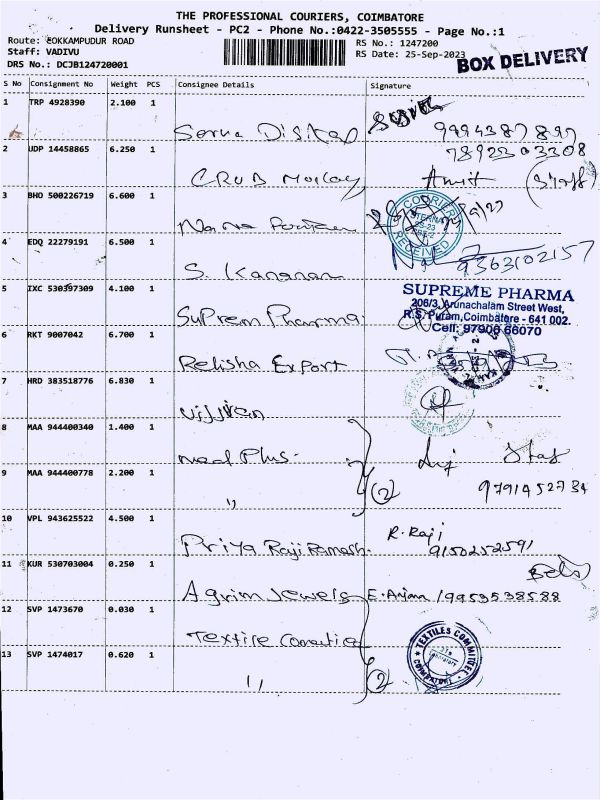 THE PROFESSIONAL COURIERS, COIMBATORE
Delivery Runsheet - PC2 - Phone No.:0422-3505555 - Page No.:1
Route: EOKKAMPUDUR ROAD
RS No.: 1247200
Staff: VADIVU
RS Date: 25-Sep-2023
DRS No.: DCJB124720001
BOX DELIVERY
S No Consignment No Weight PCS Consignee Details Signature
1 TRP 4928390 2.100 1
9994387897
2 UDP 14458865 6.250 1
7892303308
Amit (Staff)
3 BHO 500226719 6.600 1
COURIER
RECEIVED
4 EDQ 22279191 6.500 1
9363102157
S. Kananan
5 IXC 530397309 4.100 1
SUPREME PHARMA
206/3, Arunachalam Street West,
R.S. Puram, Coimbatore - 641 002.
Cell: 97906 66070
Suprem Pharma
6 RKT 9007042 6.700 1
Relisha Export
7 HRD 383518776 6.830 1
8 MAA 944400340 1.400 1
med Plus.
9 MAA 944400778 2.200 1
" (2) 9791452734
10 VPL 943625522 4.500 1
R. Raji
Priya Raji Ramesh. 9150252591
11 KUR 530703004 0.250 1
Agrim Jewels E. Anjana 19953538588
12 SVP 1473670 0.030 1
Textile Comettie
TEXTILES COMMITTEE
COIMBATORE
13 SVP 1474017 0.620 1
" (2)